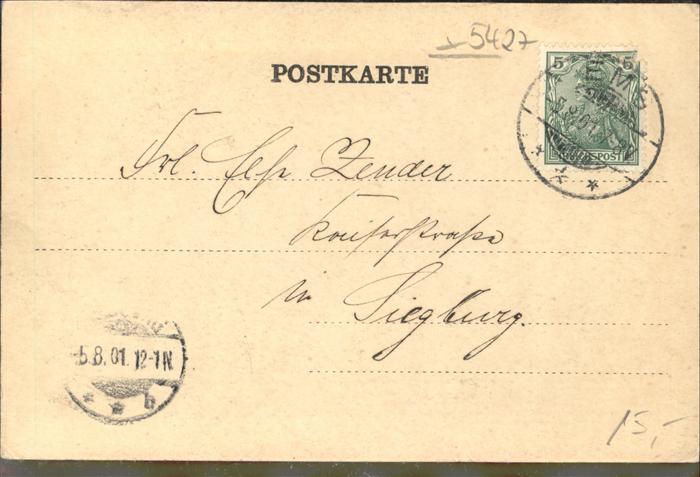 5427
POSTKARTE
5 5
EMS
5.8.01.
REICHSPOST
Frl. Else Zender
Kaiserstraße
in Siegburg.
5.8.01. 12-1N.
* * b
15,-